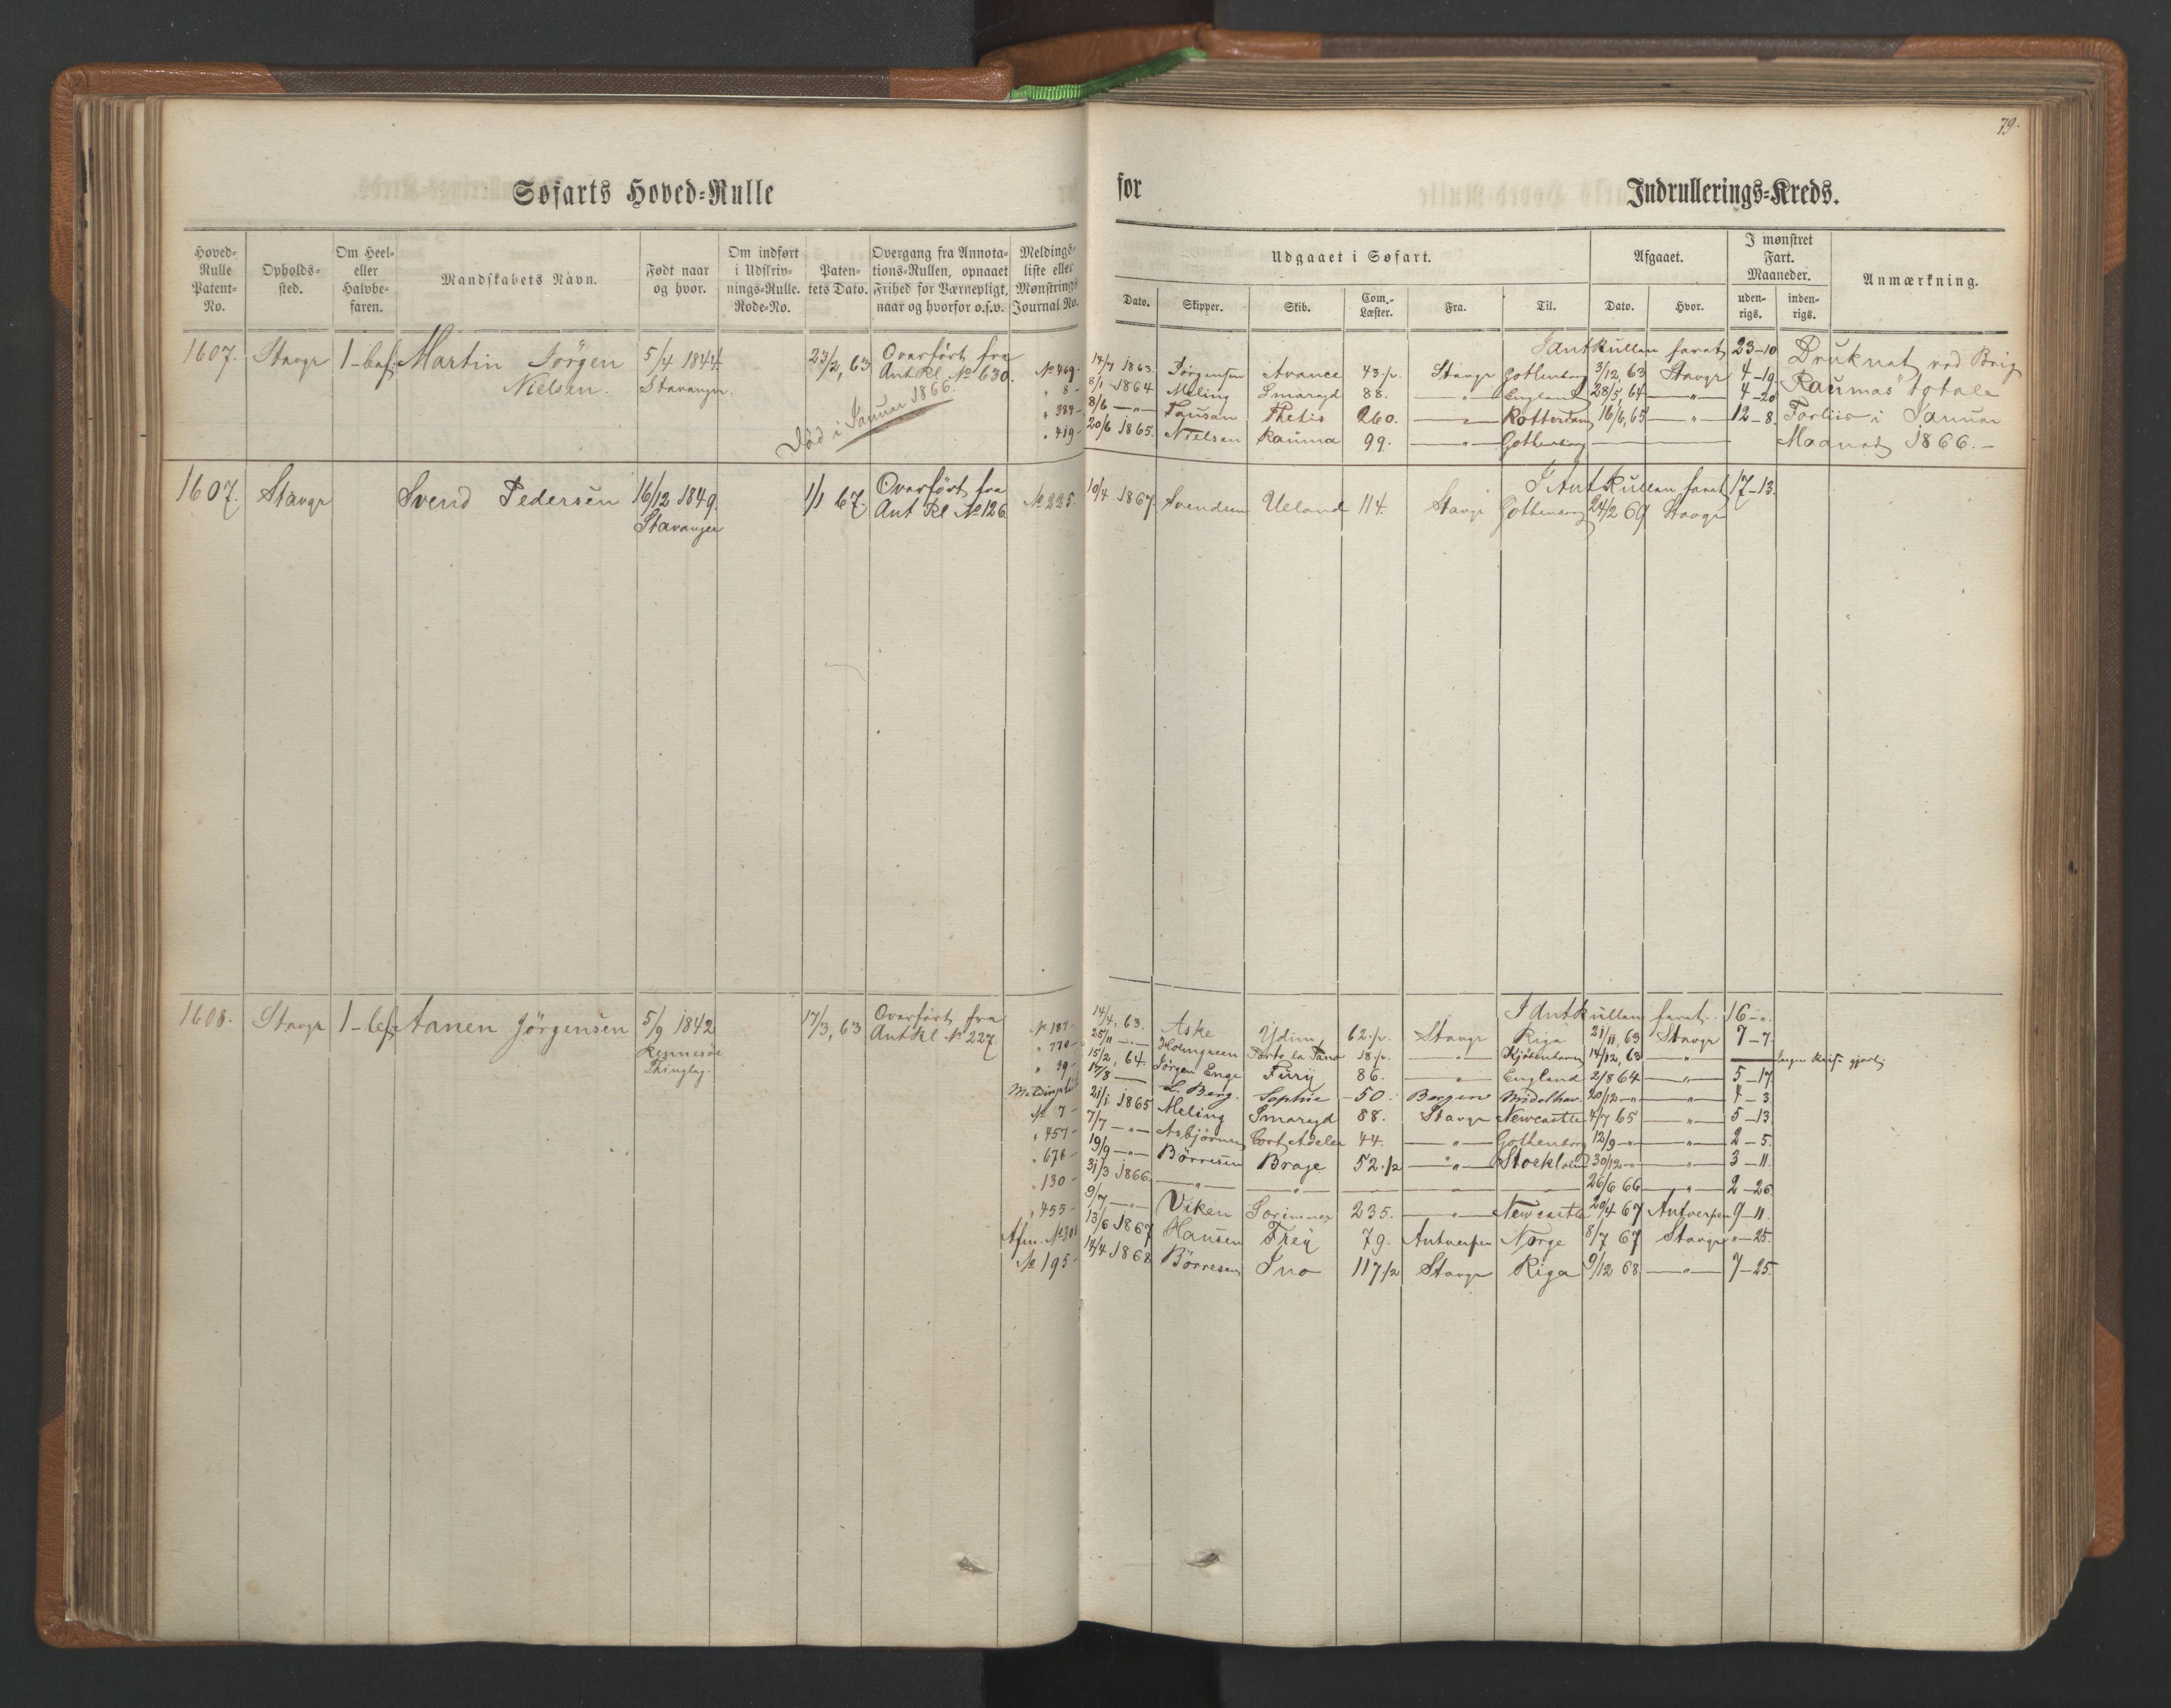 79.
Søfarts Hoved-Rulle
for Indrullerings-Kreds.
Hoved-Rulle Patent-No.
Opholds-sted.
Om Heel- eller Halvbe-faren.
Mandskabets Navn.
Født naar og hvor.
Om indført i Udskriv-nings-Rulle. Rode-No.
Paten-tets Dato.
Overgang fra Annota-tions-Rullen, opnaaet Frihed for Værnepligt, naar og hvorfor o.s.v.
Meldings-liste eller Mønstrings Journal No.
Udgaaet i Søfart.
Dato. Skipper. Skib. Com.-Læster. Fra. Til.
Afgaaet.
Dato. Hvor.
I mønstret Fart. Maaneder.
uden-rigs. inden-rigs.
Anmærkning.
1607. Stavgr 1-bef. Martin Jörgen Nielsen. 5/4 1844 Stavanger. 23/2, 63 Overfört fra Ant Rl. No 630.
Död i Januar 1866.
I Ant Rullen faret 23-10
No 469- 14/7 1863. Jörgensen Avance 43 1/2. Stavgr Gothenborg 3/12, 63 Stavgr 4-19
" 8- 8/1 1864 Meling Smaragd 88. -"- England 28/5, 64 -"- 4-20
" 384- 8/6 -"- Tausan Thetis 260. -"- Rotterdam 16/6, 65 -"- 12-8.
" 419- 20/6 1865. Nielsen Rauma 99. -"- Gothenborg
Druknet ved Brig
Raumas" totale
Forliis i Januar
Maaned 1866.-
1607. Stavgr Svend Pedersen 16/12 1849. Stavanger 1/1 67. Overfört fra Ant Rl No 126
I Ant Rullen faret 17-13.
No 225. 10/4 1867. Svendsen Ueland 114. Stavgr Gothenborg 24/2 69 Stavgr
1608. Stavgr 1-bef. Aanen Jörgensen 5/9 1842 Rennesöe Thinglag. 17/3, 63 Overfört fra Ant Rl No 227.
I Ant Rullen faret 16-".
No 187- 14/4, 63. Aske Ydun 62 1/2. Stavgr Riga 21/11, 63 Stavgr 7-7.
" 770- 25/11 -"- Holmgreen 18 1/2. -"- Kjöbenhavn 14/12, 63 -"-
" 39- 15/2, 64. Jörgen Enge Fury 86. -"- England 2/8 64 -"- 5-17
17/8 -"- L. Berg. Sophie 50. Bergen Middelhav. 20/12 -"- -"- 4-3
No 7- 21/1 1865 Meling Smaragd 88. Stavgr Newcastle 4/7 65 -"- 5-13
" 457- 7/7 -"- Asbjörnsen Cort Adeler 44. -"- Gothenborg 12/9 -"- -"- 2-5.
" 676- 19/9 -"- Börresen Brage 52 1/2 -"- Stockholm 30/12 -"- -"- 3-11.
" 130- 31/3 1866. -"- -"- 26/6 66 -"- 2-26.
" 455- 9/7 -"- Viken Sorimner 235. -"- Newcastle 20/4 67 Antverpen 9-11.
Afm. No 301 13/6 1867 Hansen Frey 79. Antverpen Norge 8/7 67 Stavgr "-25.
No 195- 14/4 1868 Börresen Ino 117 1/2 Stavgr Riga 9/12 68 -"- 7-25.